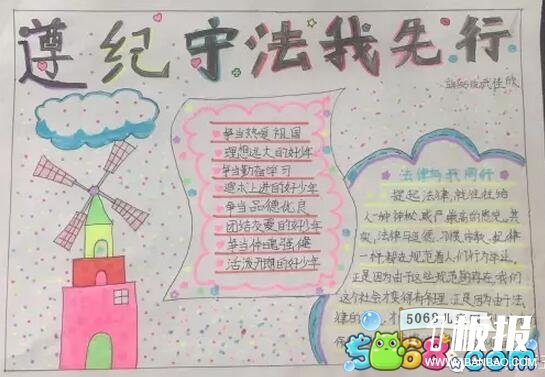 遵纪守法我先行
争当热爱祖国
理想远大的好少年
争当勤奋学习
追求上进的好少年
争当品德优良
团结友爱的好少年
争当体魄强健
活泼开朗的好少年
法律与我同行
提起法律,就往往给
人一种神秘,威严,崇高的感觉。其
实,法律与道德、习俗、宗教、纪律
一样都在规范着人们行为举止。
正是因为由于这些规范的存在,我们
这个社会才变得有条理,正是因为由于法
律的
保
5068儿
5068.com
板报
WWW.BANBAO.COM